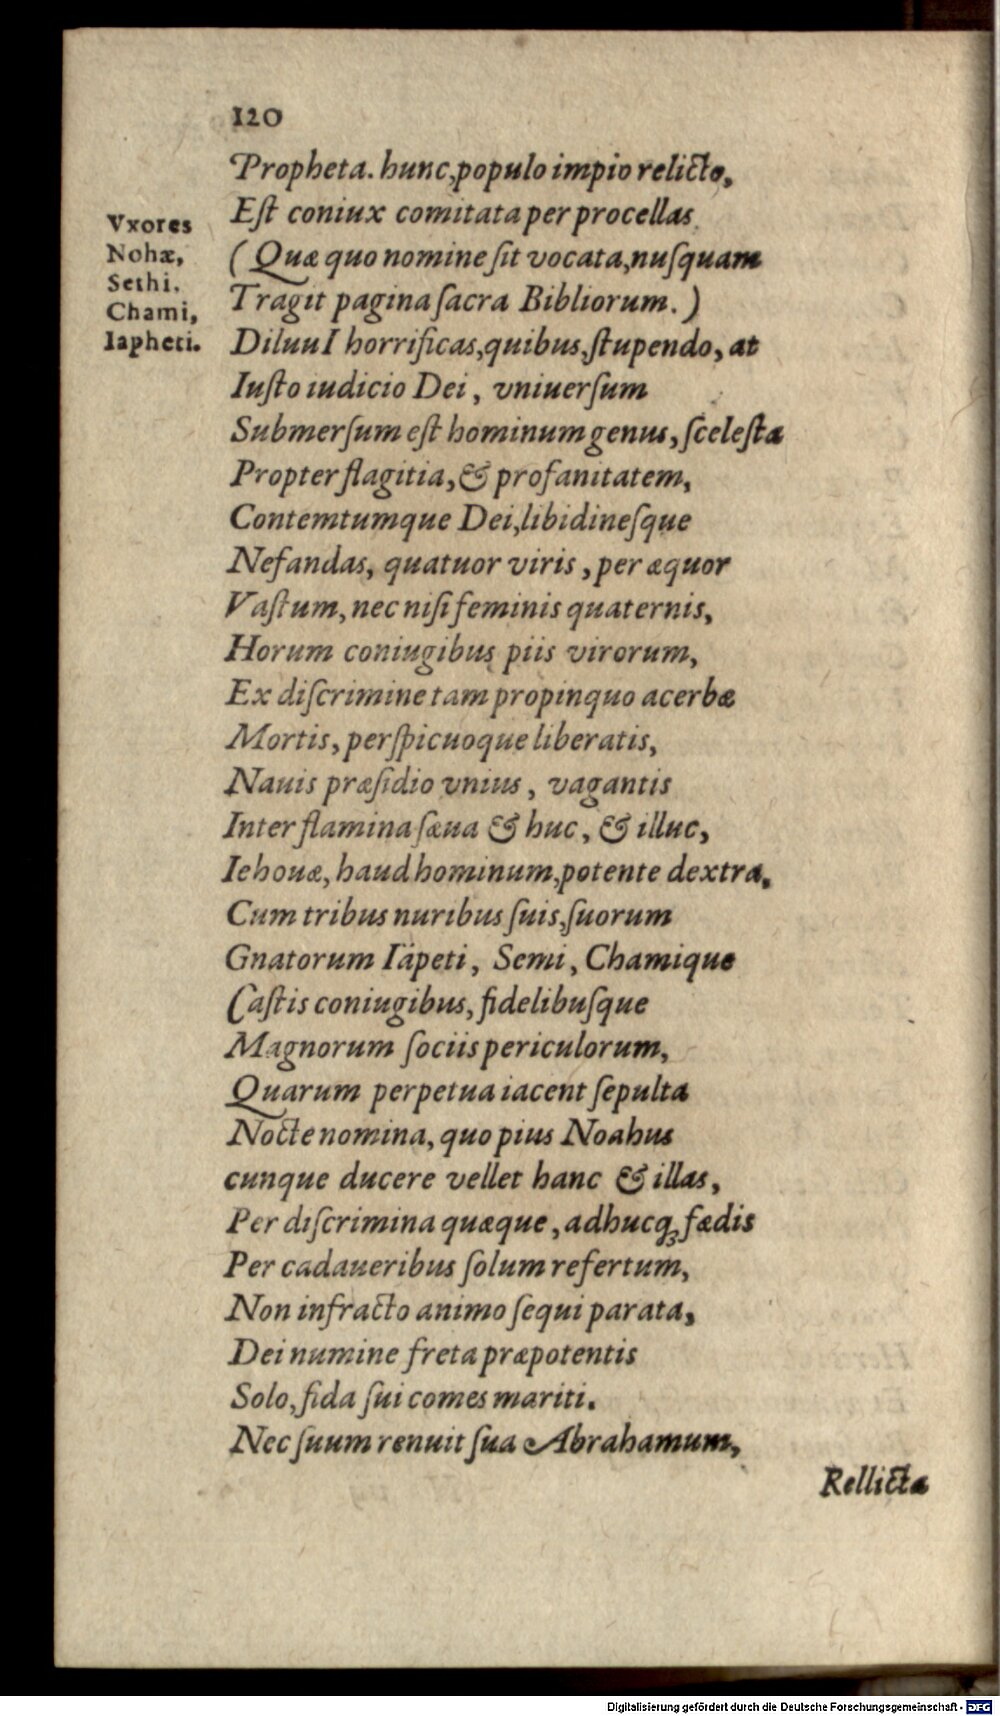 120
Propheta. hunc, populo impio relicto,
Est coniux comitata per procellas
Vxores
Nohæ,
Sethi.
Chami,
Iapheti.
(Quæ quo nomine sit vocata, nusquam
Tragit pagina sacra Bibliorum.)
DiluuI horrificas, quibus, stupendo, at
Iusto iudicio Dei, vniuersum
Submersum est hominum genus, scelesta
Propter flagitia, & profanitatem,
Contemtumque Dei, libidinesque
Nefandas, quatuor viris, per æquor
Vastum, nec nisi feminis quaternis,
Horum coniugibus piis virorum,
Ex discrimine tam propinquo acerbæ
Mortis, perspicuoque liberatis,
Nauis præsidio vnius, vagantis
Inter flamina sæua & huc, & illuc,
Iehouæ, haud hominum, potente dextra,
Cum tribus nuribus suis, suorum
Gnatorum Iäpeti, Semi, Chamique
Castis coniugibus, fidelibusque
Magnorum sociis periculorum,
Quarum perpetua iacent sepulta
Nocte nomina, quo pius Noahus
cunque ducere vellet hanc & illas,
Per discrimina quæque, adhucq́ꝫ fædis
Per cadaueribus solum refertum,
Non infracto animo sequi parata,
Dei numine freta præpotentis
Solo, fida sui comes mariti.
Nec suum renuit sua Abrahamum,
Rellicta
Digitalisierung gefördert durch die Deutsche Forschungsgemeinschaft - DFG